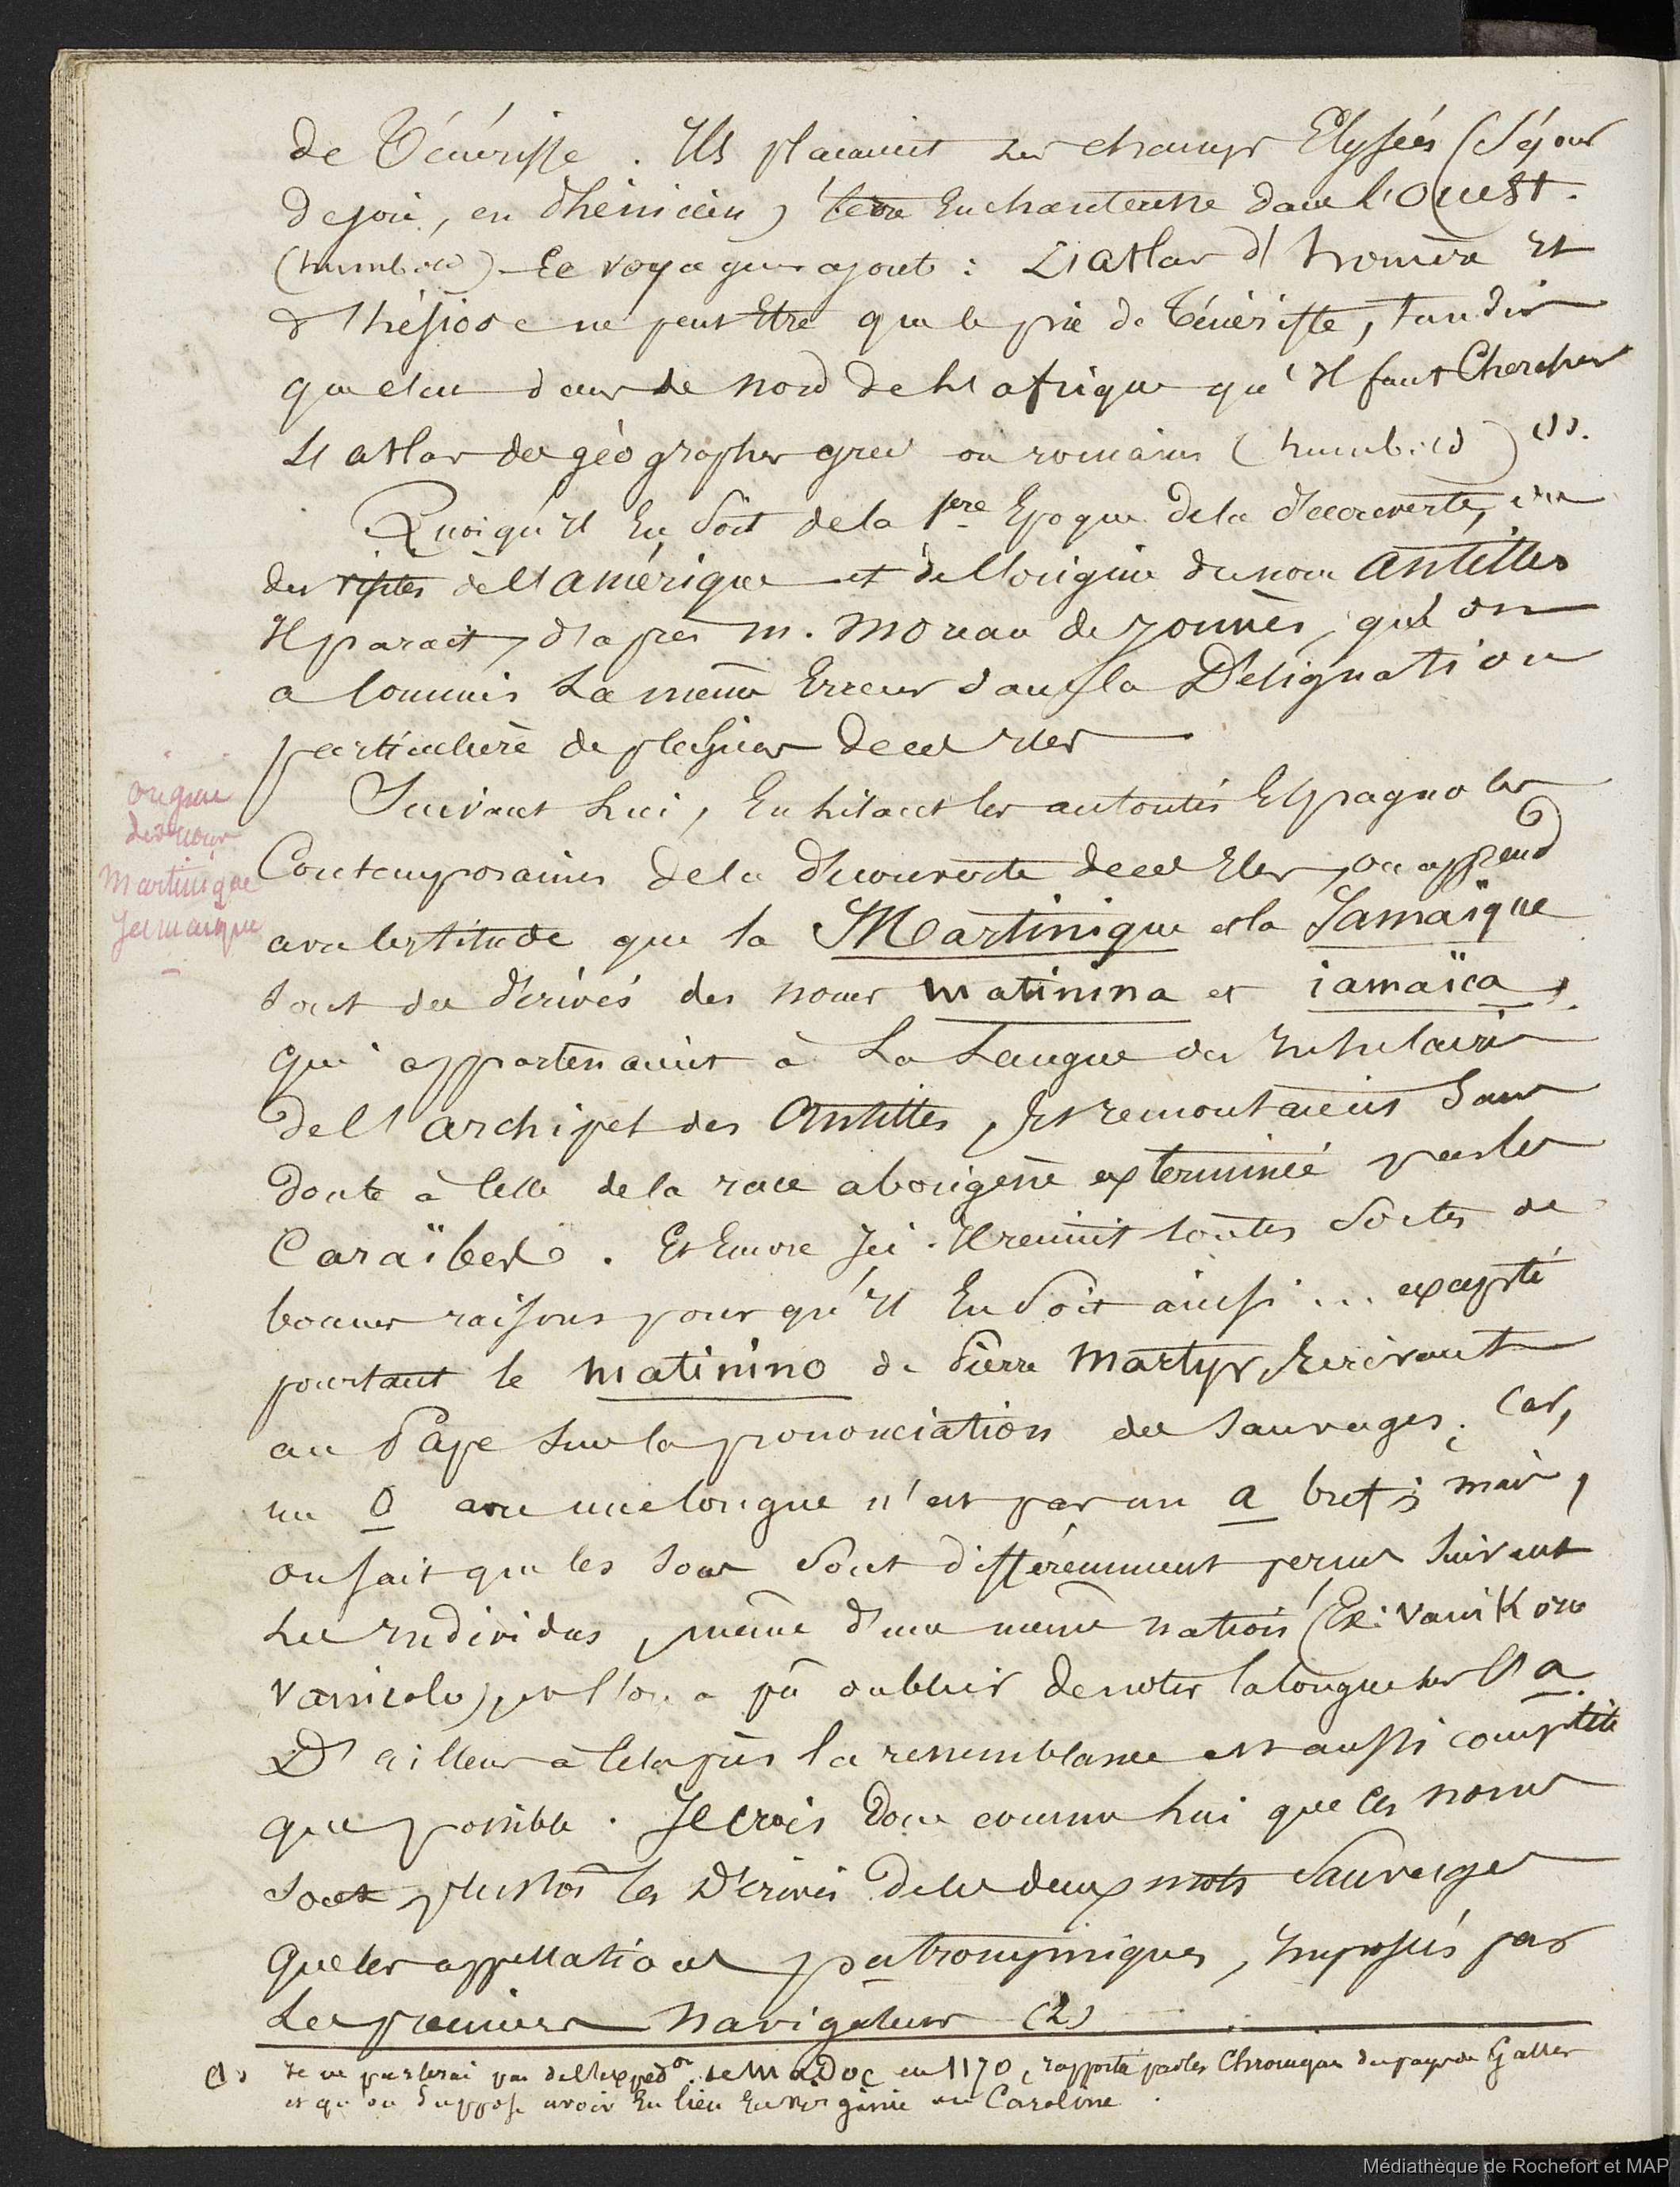 de Ténériffe. Ils plaçaient les champs Elysées (Séjour
de joie, en Phénicien) terre Enchanteresse dans l'Ouest.
(humbold) — Ce voyageur ajoute : L'atlas d'homère Et
d'hésiode ne peut Etre que le pic de Ténériffe, tandis
que c'est dans le nord de l'afrique qu'Il faut Chercher
L'atlas des géographes grecs ou romains (humbold) (1).
Quoiqu'Il En Soit de la 1ere Epoque de la découverte,
des de l'amérique et de l'origine du nom Antilles
Il parait, d'après m. moreau de jonnès, qu'on
a commis la même Erreur dans la Désignation
particulière de plusieurs de ces Iles
origine
des noms
Martinique
Jamaique
Suivant Lui, En lisant les auteurs Espagnols
Contemporains de la découverte de ces Iles, on apprend
avec certitude que la Martinique et la Jamaïque
sont des dérivés des noms matinina et iamaïca,
qui appartenaient à La Langue des Insulaires
de l'archipel des Antilles, Et remontaient Sans
doute à celle de la race aborigène exterminée par les
Caraïbes. Et Encore Ici. Il réunit toutes Sortes de
bonnes raisons pour qu'Il En Soit ainsi ... excepté
pourtant le matinino de Pierre Martyr, Ecrivant
au Pape Sur la prononciation des Sauvages; Car,
un O avec une longue n'est pas un a bref; mais,
on sait que les sons Sont différemment perçus Suivant
Les Individus, même d'une même nation (Ex: vanikoro
vanicolo) et l'on a pû oublier de noter la longue sur l'a.
D'ailleurs à cela près la ressemblance est aussi complète
que possible. Je crois donc comme lui que ces noms
sont plustôt les Dérivés de ces deux mots Sauvages
que les appellations patronymiques, Imposés par
Les premiers navigateurs (2)
(1) Je ne parlerai pas de l'expédon. de Madoc en 1170, rapportée par les Chroniques du pays de Galles
et qu'on Suppose avoir Eu lieu En virginie ou Caroline.
Médiathèque de Rochefort et MAP